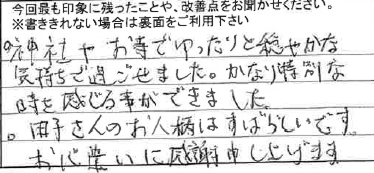 今回最も印象に残ったことや、改善点をお聞かせください。
※書ききれない場合は裏面をご利用下さい
○神社やお寺でゆったりと穏やかな
気持ちで過ごせました。かなり特別な
時を感じる事ができました。
○ 田子さんのお人柄はすばらしいです。
お心遣いに感謝申し上げます